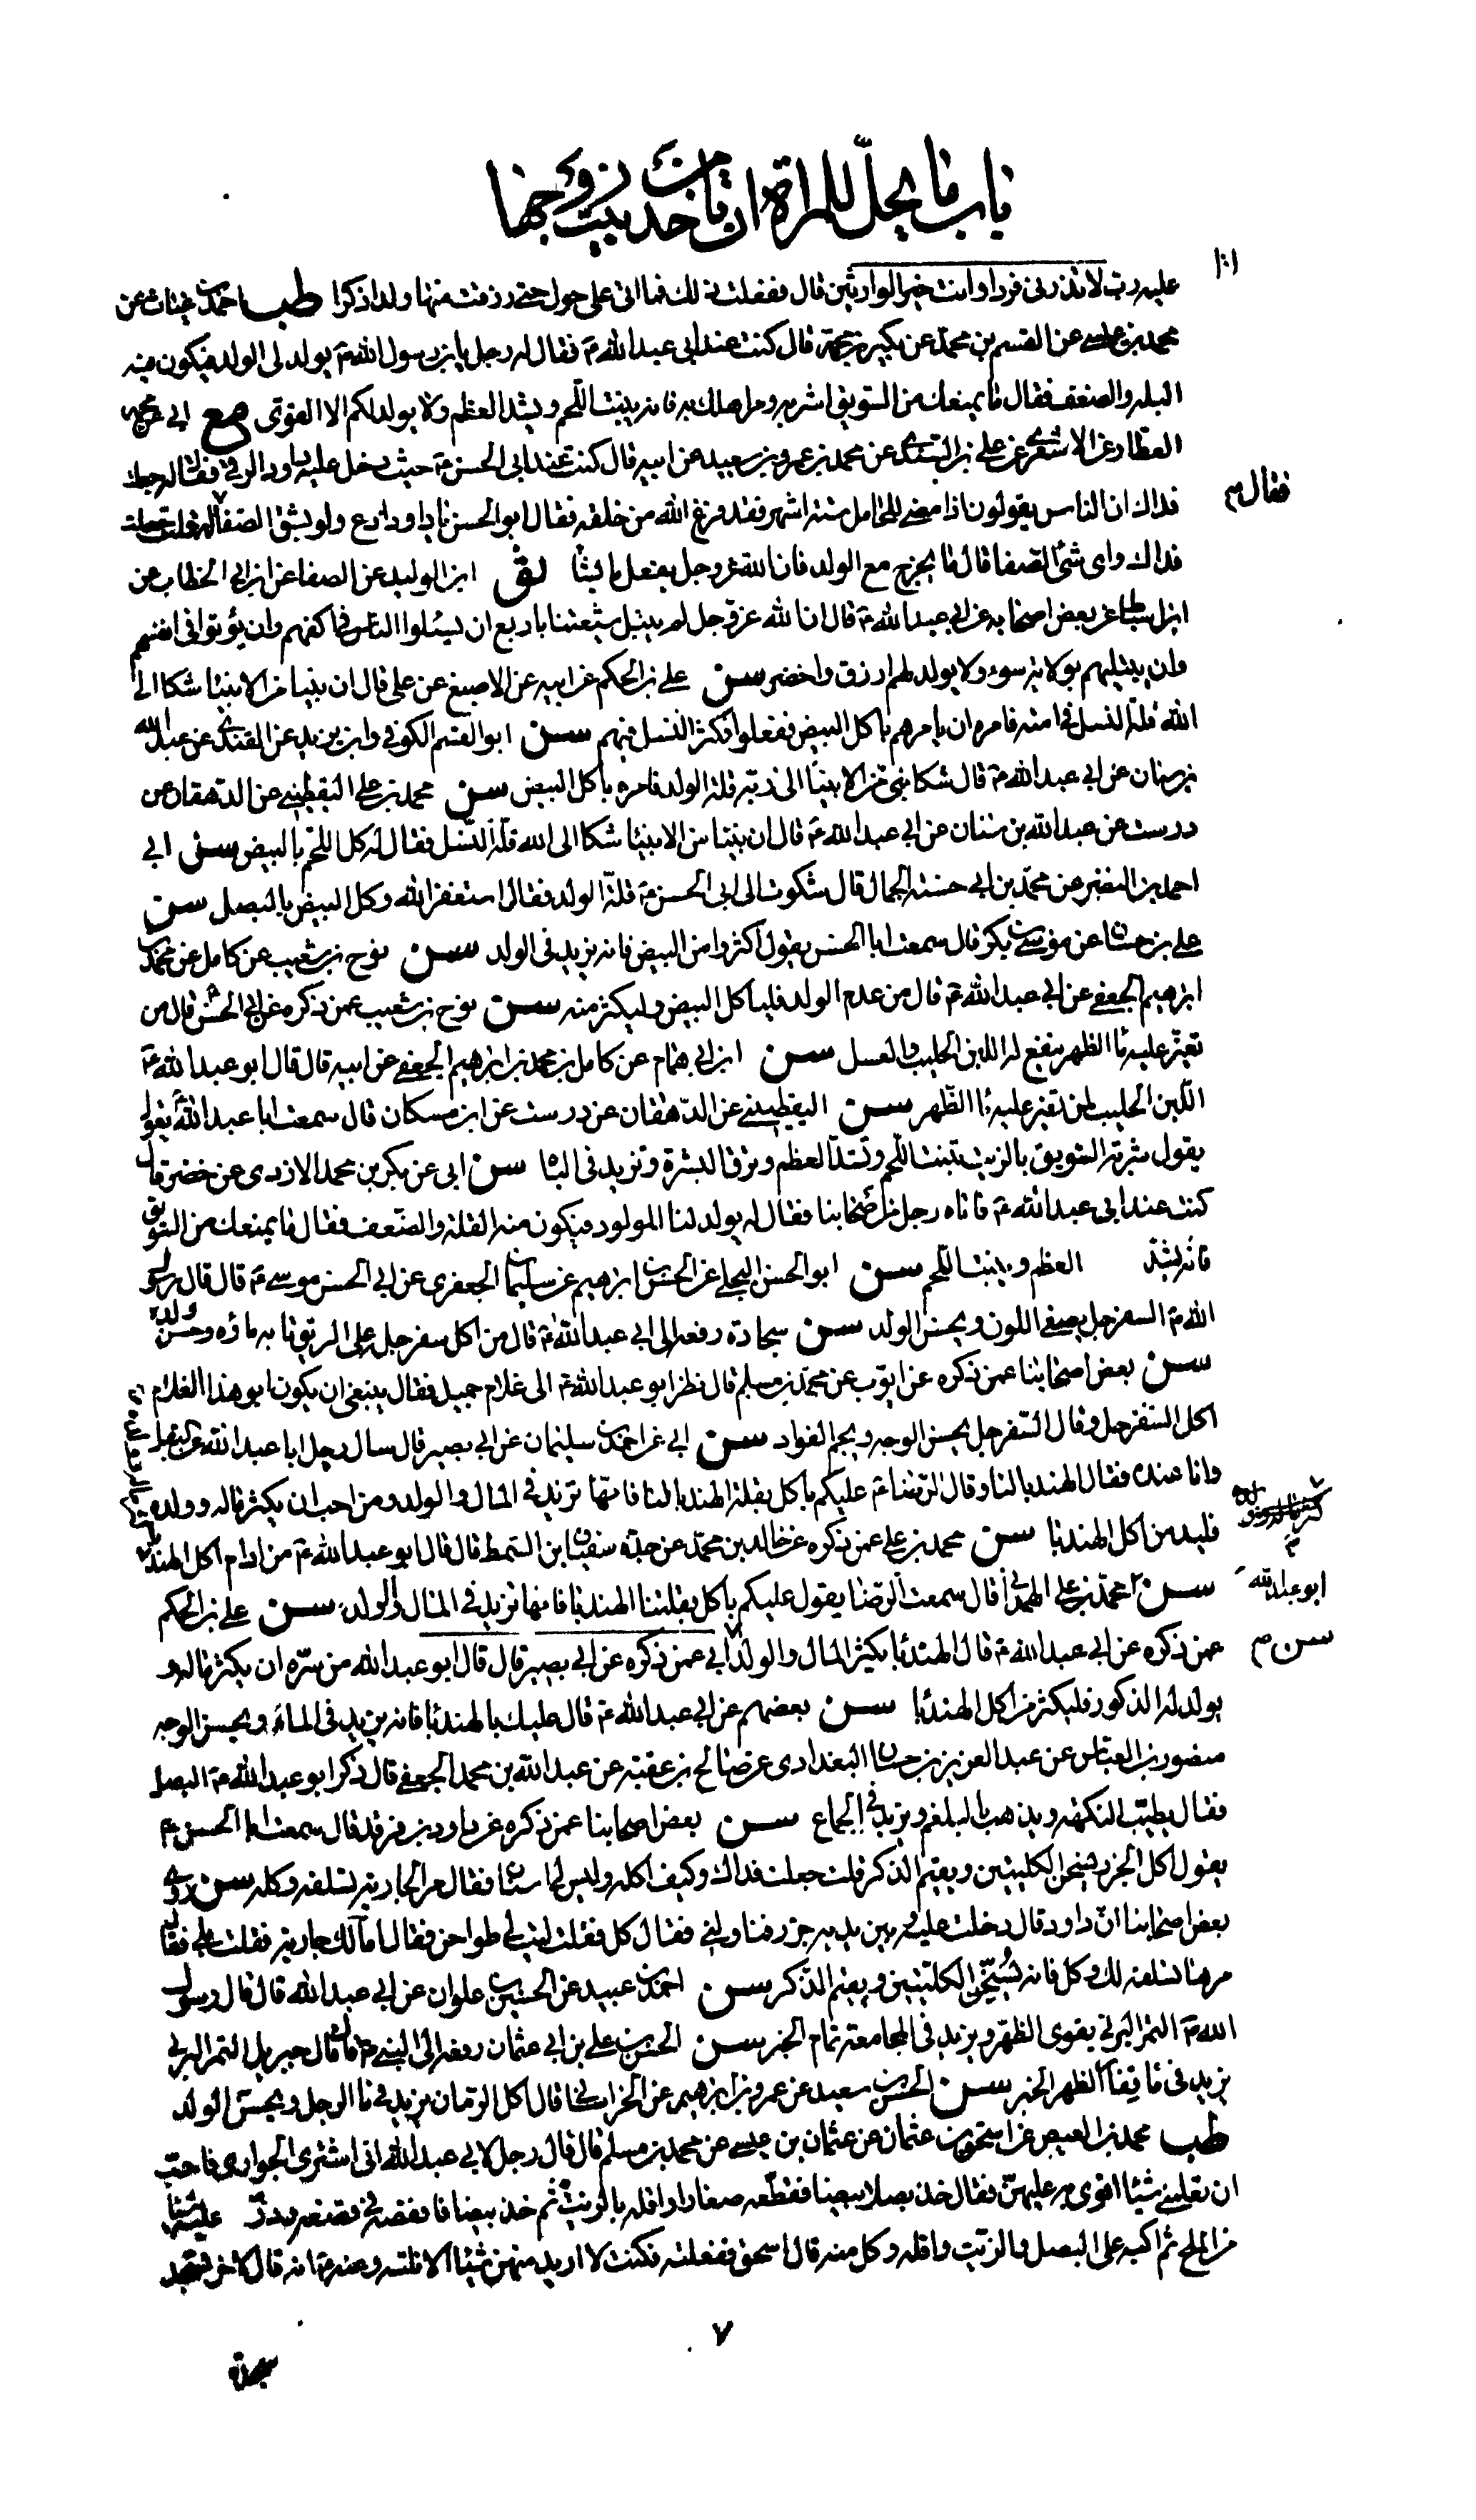 باب ما يحلّ للمراة ان تاخذ من بيت زوجها
اذا
عليه رب لا تذرنى فردا وانت خير الوارثين قال ففعلت ذلك فما اتى على حول حتى رزقت منها ولدا ذكرا طب احمد بن غياث عن
محمد بن عيسى عن القسم بن محمد عن بكير بن محمد قال كنت عند ابى عبد الله ع فقال له رجل يا بن رسول الله ع يولد لى الولد فيكون منه
البله والضعف فقال ما يمنعك من السويق اشربه ومر اهلك به فانه ينبت اللحم ويشد العظم ولا يولد لكم الا القوى مع ابى عن محمد
العطار عن الاشعرى عن على بن السندى عن محمد بن عمرو بن سعيد عن ابيه قال كنت عند ابى الحسن ع حيث دخل عليه داود الرقى فقال له جعلت
فداك ان الناس يقولون اذا مضى للحامل ستة اشهر فقد فرغ الله من خلقه فقال ابو الحسن يا داود ادع ولو بشق الصفا قلت جعلت
فقال م
فداك واى شئ الصفا قال ما يخرج مع الولد فان الله عز وجل يفعل ما يشا لق ابن الوليد عن الصفا عن ابن ابى الخطاب عن
ابن اسباط عن بعض اصحابه عن ابى عبد الله ع قال ان لله عز وجل لم يبتل شيعتنا باربع ان يسئلوا الناس فى اكفهم وان يؤتوا فى انفسهم
وان يبتليهم بولاية سوء ولا يولد لهم ازرق واخضر سن على بن الحكم عن ابيه عن الاصبغ عن على قال ان نبيا من الانبيا شكا الى
الله قلة النسل فى امته فامره ان يامرهم باكل البيض ففعلوا فكثر النسل فيهم سن ابو القسم الكوفى وابن يزيد عن القندى عن عبد الله
بن سنان عن ابى عبد الله ع قال شكا نبى من الانبيا الى ربه قلة الولد فامره باكل البيض سن محمد بن على اليقطينى عن الدهقان عن
درست عن عبد الله بن سنان عن ابى عبد الله ع قال ان نبيا من الانبيا شكا الى الله قلة النسل فقال له كل اللحم بالبيض سن ابى
احمد بن النضر عن محمد بن ابى حسنة الجمال قال شكوت الى ابى الحسن ع قلة الولد فقال استغفر الله وكل البيض بالبصل سن
على بن حسان عن موسى بن بكر قال سمعت ابا الحسن يقول اكثروا من البيض فانه يزيد فى الولد سن نوح بن شعيب عن كامل عن محمد بن
ابراهيم الجعفى عن ابى عبد الله ع قال من عدم الولد فلياكل البيض وليكثر منه سن نوح بن شعيب عمن ذكره عن ابى الحسن قال من
تغير عليه ما الظهر ينفع له اللبن الحليب والعسل سن ابن ابى همام عن كامل بن محمد بن ابراهيم الجعفى عن ابيه قال قال ابو عبد الله ع
اللبن الحليب لمن تغير عليه ما الظهر سن اليقطينى عن الدهقان عن درست عن ابن مسكان قال سمعت ابا عبد الله ع يقول
يقول شربة السويق بالزيت تنبت اللحم وتشد العظم وترق البشرة وتزيد فى الباه سن ابى عن بكر بن محمد الازدى عن خضر قال
كنت عند ابى عبد الله ع فاتاه رجل من اصحابنا فقال له يولد لنا المولود فيكون منه القلة والضعف فقال ما يمنعك من السويق
فانه يشد العظم وينبت اللحم سن ابو الحسن البجلى عن الحسن بن ابراهيم عن سليمان الجعفرى عن ابى الحسن موسى ع قال قال رسول
الله ع السفرجل يصفى اللون ويحسن الولد سن سجادة رفعه الى ابى عبد الله ع قال من اكل سفرجلا على الريق طاب ماؤه وحسن ولده
سن بعض اصحابنا عمن ذكره عن ابى ايوب عن محمد بن مسلم قال نظر ابو عبد الله ع الى غلام جميل فقال ينبغى ان يكون ابو هذا الغلام
اكل السفرجل وقال السفرجل يحسن الوجه ويجم الفواد سن ابى عن احمد بن سليمان عن ابى بصير قال سال رجل ابا عبد الله عن البقل
وانا عنده فقال الهندبا لنا وقال الرضا ع عليكم باكل بقلة الهندبا لنا فانها تزيد فى المال والولد ومن احب ان يكثر ماله وولده
فليدمن اكل الهندبا سن محمد بن على عمن ذكره عن خالد بن محمد عن جده سفيان ابن السمط قال قال ابو عبد الله ع من ادام اكل الهندبا
سن محمد بن على الهمدانى قال سمعت الرضا يقول عليكم باكل بقلتنا الهندبا فانها تزيد فى المال والولد سن على بن الحكم
ابو عبد الله
عمن ذكره عن ابى عبد الله ع قال الهندبا يكثر المال والولد ابى عمن ذكره عن ابى بصير قال قال ابو عبد الله من سره ان يكثر ماله و
سن م
يولد له الذكور فليكثر من اكل الهندبا سن بعضهم عن ابى عبد الله ع قال عليك بالهندبا فانه يزيد فى الماء ويحسن الوجه
منصور بن العباس عن عبد العزيز بن حسان البغدادى عن صالح بن عقبة عن عبد الله بن محمد الجعفى قال ذكر ابو عبد الله ع البصل
فقال يطيب النكهة ويذهب بالبلغم ويزيد فى الجماع سن بعض اصحابنا عمن ذكره عن داود بن فرقد قال سمعت ابا الحسن ع
يقول اكل الجزر يسخن الكليتين ويقيم الذكر قلت جعلت فداك وكيف اكله وليس لى اسنان فقال مر الجارية تسلقه وكله سن روى
بعض اصحابنا ان داود قال دخلت عليه وبين يديه جزر فناولنى فقال كل فقلت ليت لى طواحن فقال اما لك جارية فقلت بلى فقال
مرها تسلقه لك وكل فانه يسخن الكليتين ويقيم الذكر سن احمد بن عبيد عن الحسين بن علوان عن ابى عبد الله قال قال رسول
الله ع التمر البرنى يقوى الظهر ويزيد فى المجامعة تمام الخبر سن الحسن بن على بن ابى عثمان رفعه الى النبى ع قال قال جبريل التمر البرنى
يزيد فى ما فقار الظهر الخبر سن الحسن بن سعيد عن عمرو بن ابراهيم عن الخراسانى قال اكل الرمان يزيد فى ما الرجل ويحسن الولد
طب محمد بن العيص عن اسحق بن عثمان عن عثمان بن عيسى عن محمد بن مسلم قال قال رجل لابى عبد الله انى اشترى الجوارى فاحب
ان تعلمنى شيئا اقوى به عليهن فقال خذ بصلا بيضا فقطعه صغارا واقله بالزيت ثم خذ بيضا فافقصه فى قصعة وذر عليه شيئا
من الملح ثم اكبه على البصل والزيت واقله وكل منه قال اسحق ففعلته فكنت لا اريد منهن شيئا الا نلته وعنه ع انه قال لاخر
٧